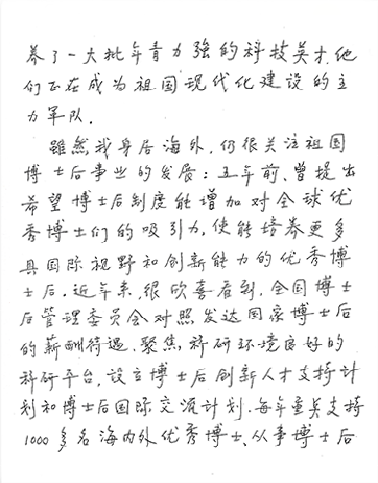 养了一大批年青力强的科技英才,他
们正在成为祖国现代化建设的主
力军队.
虽然我身居海外,仍很关注祖国
博士后事业的发展:五年前,曾提出
希望博士后制度能增加对全球优
秀博士们的吸引力,使能培养更多
具国际视野和创新能力的优秀博
士后.近年来,很欣喜看到,全国博士
后管理委员会对照发达国家博士后
的薪酬待遇、聚焦科研环境良好的
科研平台,设立博士后创新人才支持计
划和博士后国际交流计划.每年重点支持
1000多名海内外优秀博士、从事博士后